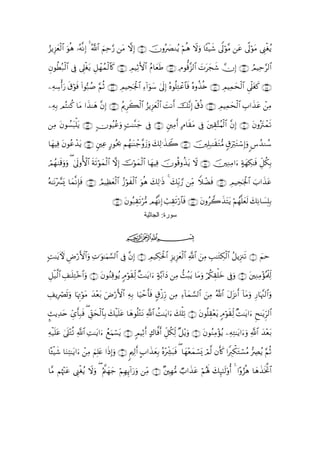 يُغْنِى مَوْلًى عَن مَّوْلًى شَيْـًٔا وَلَا هُمْ يُنصَرُونَ ﴿٤١﴾ إِلَّا مَن رَّحِمَ ٱللَّهُ ۚ إِنَّهُۥ هُوَ ٱلْعَزِيزُ
ٱلرَّحِيمُ ﴿٤٢﴾ إِنَّ شَجَرَتَ ٱلزَّقُّومِ ﴿٤٣﴾ طَعَامُ ٱلْأَثِيمِ ﴿٤٤﴾ كَٱلْمُهْلِ يَغْلِى فِى ٱلْبُطُونِ
﴿٤٥﴾ كَغَلْىِ ٱلْحَمِيمِ ﴿٤٦﴾ خُذُوهُ فَٱعْتِلُوهُ إِلَىٰ سَوَآءِ ٱلْجَحِيمِ ﴿٤٧﴾ ثُمَّ صُبُّوا۟ فَوْقَ رَأْسِهِۦ
مِنْ عَذَابِ ٱلْحَمِيمِ ﴿٤٨﴾ ذُقْ إِنَّكَ أَنتَ ٱلْعَزِيزُ ٱلْكَرِيمُ ﴿٤٩﴾ إِنَّ هَٰذَا مَا كُنتُم بِهِۦ
تَمْتَرُونَ ﴿٥٠﴾ إِنَّ ٱلْمُتَّقِينَ فِى مَقَامٍ أَمِينٍ ﴿٥١﴾ فِى جَنَّٰتٍ وَعُيُونٍ ﴿٥٢﴾ يَلْبَسُونَ مِن
سُندُسٍ وَإِسْتَبْرَقٍ مُّتَقَٰبِلِينَ ﴿٥٣﴾ كَذَٰلِكَ وَزَوَّجْنَٰهُم بِحُورٍ عِينٍ ﴿٥٤﴾ يَدْعُونَ فِيهَا
بِكُلِّ فَٰكِهَةٍ ءَامِنِينَ ﴿٥٥﴾ لَا يَذُوقُونَ فِيهَا ٱلْمَوْتَ إِلَّا ٱلْمَوْتَةَ ٱلْأُولَىٰ ۖ وَوَقَىٰهُمْ
عَذَابَ ٱلْجَحِيمِ ﴿٥٦﴾ فَضْلًا مِّن رَّبِّكَ ۚ ذَٰلِكَ هُوَ ٱلْفَوْزُ ٱلْعَظِيمُ ﴿٥٧﴾ فَإِنَّمَا يَسَّرْنَٰهُ
بِلِسَانِكَ لَعَلَّهُمْ يَتَذَكَّرُونَ ﴿٥٨﴾ فَٱرْتَقِبْ إِنَّهُم مُّرْتَقِبُونَ ﴿٥٩﴾
سورة: الجاثية
بِسْمِ ٱللَّهِ ٱلرَّحْمَٰنِ ٱلرَّحِيمِ
حمٓ ﴿١﴾ تَنزِيلُ ٱلْكِتَٰبِ مِنَ ٱللَّهِ ٱلْعَزِيزِ ٱلْحَكِيمِ ﴿٢﴾ إِنَّ فِى ٱلسَّمَٰوَٰتِ وَٱلْأَرْضِ لَءَايَٰتٍ
لِّلْمُؤْمِنِينَ ﴿٣﴾ وَفِى خَلْقِكُمْ وَمَا يَبُثُّ مِن دَآبَّةٍ ءَايَٰتٌ لِّقَوْمٍ يُوقِنُونَ ﴿٤﴾ وَٱخْتِلَٰفِ ٱلَّيْلِ
وَٱلنَّهَارِ وَمَآ أَنزَلَ ٱللَّهُ مِنَ ٱلسَّمَآءِ مِن رِّزْقٍ فَأَحْيَا بِهِ ٱلْأَرْضَ بَعْدَ مَوْتِهَا وَتَصْرِيفِ
ٱلرِّيَٰحِ ءَايَٰتٌ لِّقَوْمٍ يَعْقِلُونَ ﴿٥﴾ تِلْكَ ءَايَٰتُ ٱللَّهِ نَتْلُوهَا عَلَيْكَ بِٱلْحَقِّ ۖ فَبِأَىِّ حَدِيثٍۭ
بَعْدَ ٱللَّهِ وَءَايَٰتِهِۦ يُؤْمِنُونَ ﴿٦﴾ وَيْلٌ لِّكُلِّ أَفَّاكٍ أَثِيمٍ ﴿٧﴾ يَسْمَعُ ءَايَٰتِ ٱللَّهِ تُتْلَىٰ عَلَيْهِ
ثُمَّ يُصِرُّ مُسْتَكْبِرًا كَأَن لَّمْ يَسْمَعْهَا ۖ فَبَشِّرْهُ بِعَذَابٍ أَلِيمٍ ﴿٨﴾ وَإِذَا عَلِمَ مِنْ ءَايَٰتِنَا شَيْـًٔا
ٱتَّخَذَهَا هُزُوًا ۚ أُو۟لَٰٓئِكَ لَهُمْ عَذَابٌ مُّهِينٌ ﴿٩﴾ مِّن وَرَآئِهِمْ جَهَنَّمُ ۖ وَلَا يُغْنِى عَنْهُم مَّا